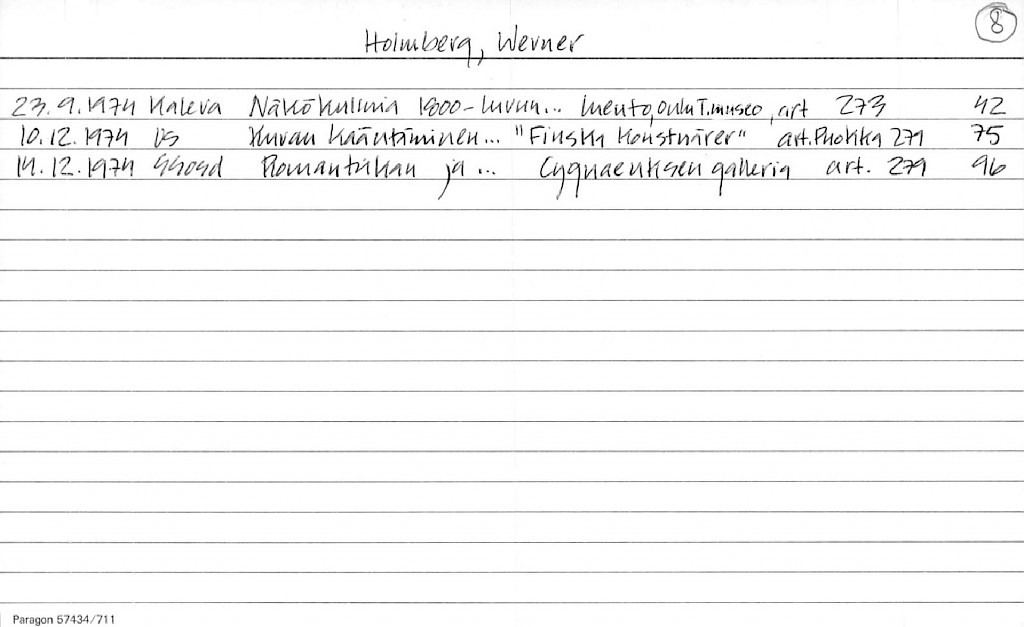 8
Holmberg, Werner
23.9.1974 Kaleva Näkökulmia 1800-luvun... luento, Oulu T.museo, art 273 42
10.12.1974 US Kuvan kääntäminen... "Finska Konstnärer" art. 279 75
14.12.1974 Romantiikan ja ... Cygnaeuksen galleria art. 279 96
Paragon 57434/711